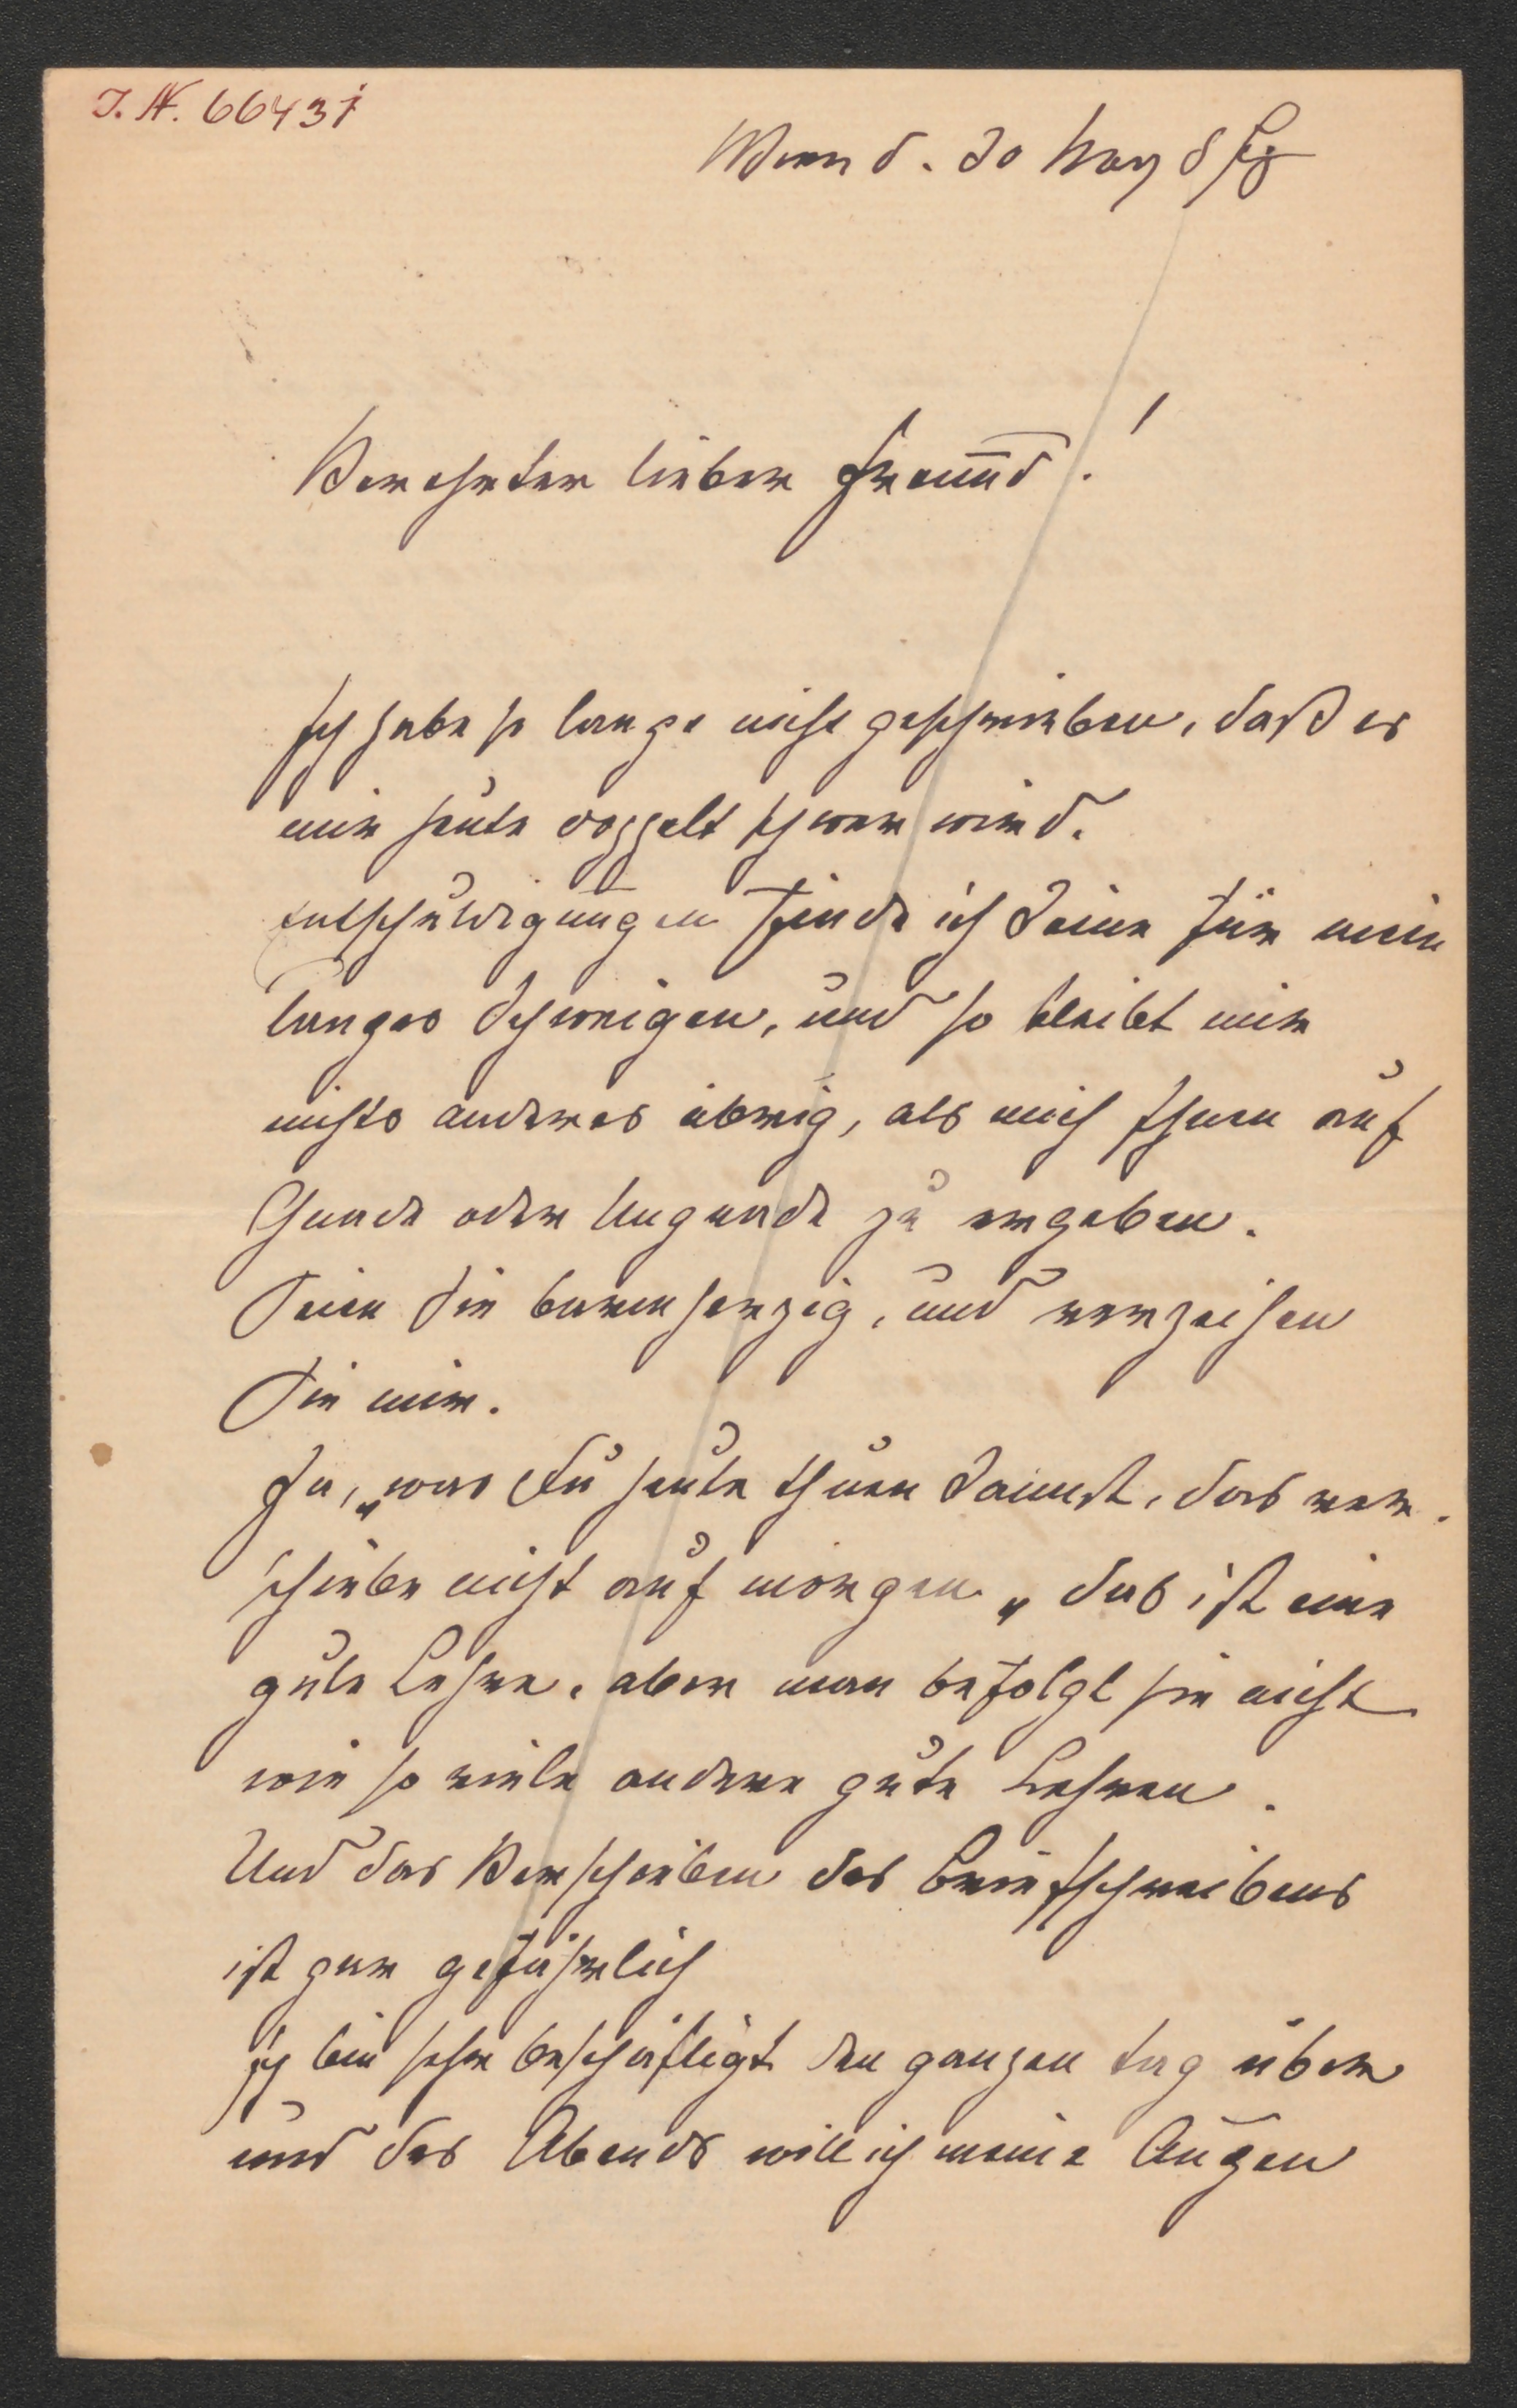 I. N. 66431
Wien d. 30 May
Verehrter lieber Freund!
Ich habe so lange nicht geschrieben, daß es
mir heute doppelt schwer wird.
Entschuldigungen finde ich keine für mein
langes Schweigen, und so bleibt mir
nichts anderes übrig, als mich Ihnen auf
Gnade oder Ungnade zu ergeben.
Seien Sie barmherzig, und verzeihen
Sie mir.
Ja, „was Du heute thuen kannst, das ver-
schiebe nicht auf morgen„ das ist eine
gute Lehre, aber man befolgt sie nicht
wie so viele andere gute Lehren.
Und das Verschieben des Briefschreibens
ist gar gefährlich
Ich bin sehr beschäftigt den ganzen tag über
und des Abends will ich meine Augen